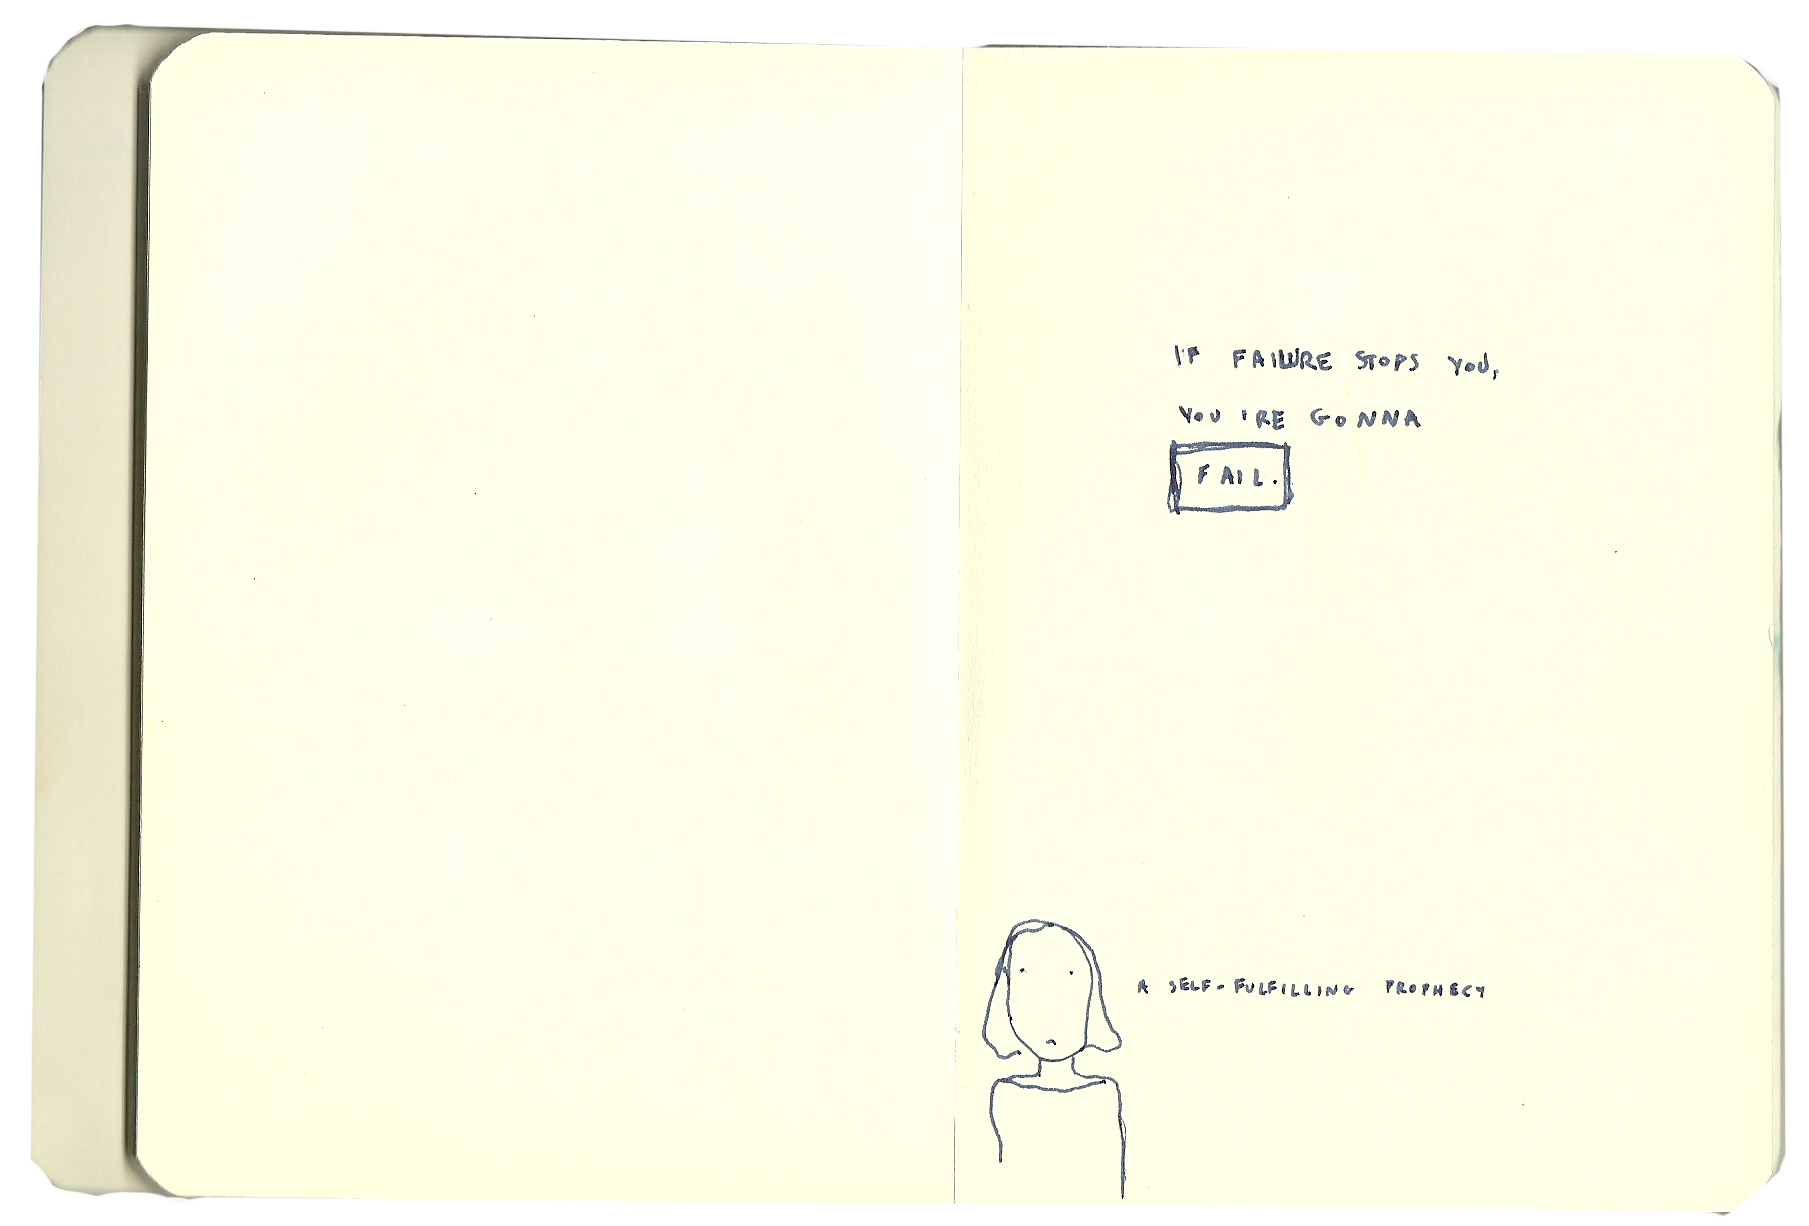 IF FAILURE STOPS YOU,
YOU'RE GONNA
FAIL.
A SELF-FULFILLING PROPHECY